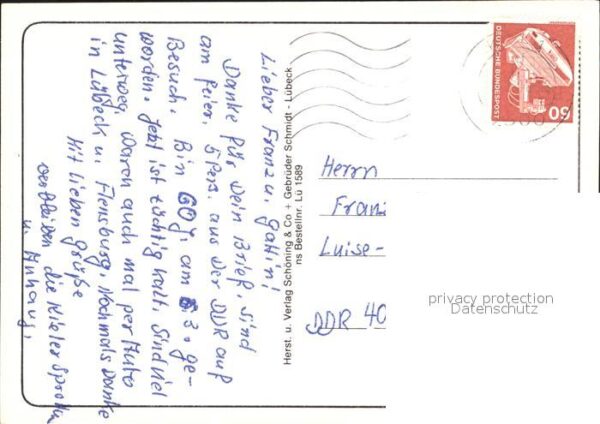 Lieber Franz u. Gattin!
Danke für Dein Brief, sind
am feiern. 5 Pers. aus der DDR auf
Besuch. Bin 60 J. am 3. ge-
worden. Jetzt ist tüchtig kalt. Sind viel
unterweg. Warn auch mal per Auto
in Lübeck u. Flensburg. Nochmals Danke
Mit lieben Grüße
verbleiben die Kieler Sprotten
u. Anhang.
Herst. u. Verlag Schöning & Co + Gebrüder Schmidt - Lübeck
ns Bestellnr. Lü 1589
DEUTSCHE BUNDESPOST
60
Herrn
Fran
Luise-
DDR 40
privacy protection
Datenschutz